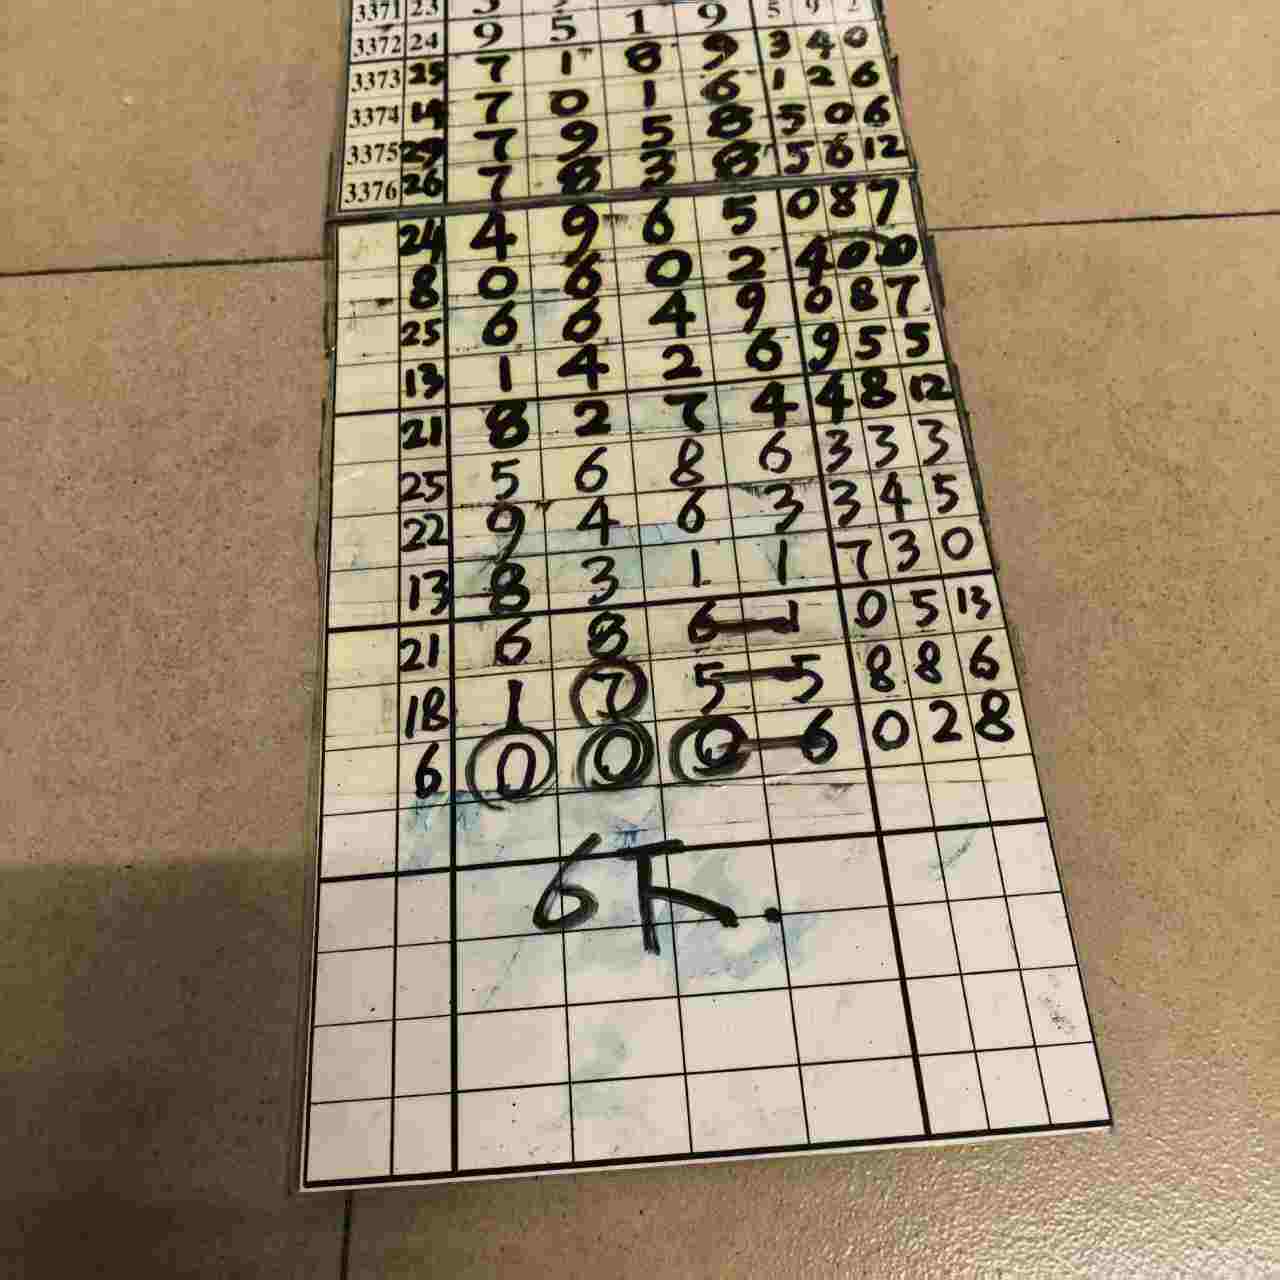 3371 23 5 9 2
3372 24 9 5 1 9 3 4 0
3373 25 7 1 8 9 1 2 6
3374 19 7 0 1 6 5 0 6
3375 29 7 9 5 8 5 6 12
3376 26 7 8 3 8 0 8 7
24 4 9 6 5 4 0 0
8 0 6 0 2 0 8 7
25 6 6 4 9 9 5 5
13 1 4 2 6 4 8 12
21 8 2 7 4 3 3 3
25 5 6 8 6 3 4 5
22 9 4 6 3 7 3 0
13 8 3 1 1 0 5 13
21 6 8 6 1 8 8 6
18 1 7 5 5 0 2 8
6 0 0 0 6
6下.